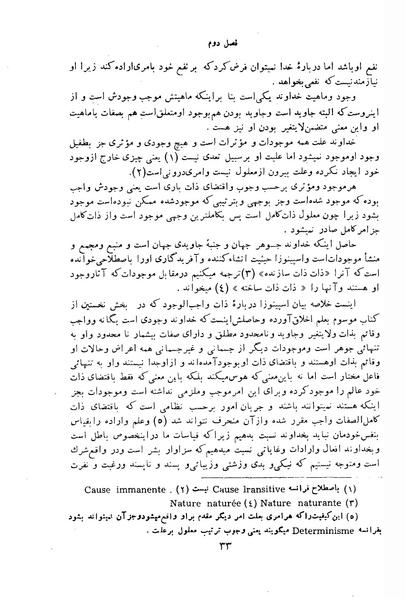 فصل دوم
نفع او باشد اما دربارهٔ خدا نمیتوان فرض کرد که بر نفع خود بامری اراده کند زیرا او
نیازمند نیست که نفعی بخواهد .
وجود و ماهیت خداوند یکی است بنا بر اینکه ماهیتش موجب وجودش است و از
اینروست که البته جاوید است و جاوید بودن هم بوجود او متعلق است هم بصفات یا ماهیت
او و این معنی متضمن لایتغیر بودن او نیز هست .
خداوند علت همه موجودات و مؤثرات است و هیچ وجودی و مؤثری جز بطفیل
وجود او موجود نمیشود اما علیت او بر سبیل تعدی نیست (۱) یعنی چیزی خارج از وجود
خود ایجاد نکرده و علت بیرون از معلول نیست و امری درونی است (۲).
هر موجود و مؤثری بر حسب وجوب و اقتضای ذات باری است یعنی وجودش واجب
بوده که موجود شده است و جز بوجهی و بترتیبی که موجود شده ممکن نبوده است موجود
بشود زیرا چون معلول ذات کامل است پس بکاملترین وجهی موجد است و از ذات کامل
جز امر کامل صادر نمیشود .
حاصل اینکه خداوند جوهر جهان و جنبهٔ جاویدی جهان است و منبع و مجمع و
منشأ موجودات است و اسپینوزا حیثیت انشاء کننده و آفریدگاری او را باصطلاحی خوانده
است که آنرا «ذات ذات سازنده» (۳) ترجمه میکنیم در مقابل موجودات که آثار وجود
او هستند و آنها را « ذات ذات ساخته » (٤) میخواند .
اینست خلاصه بیان اسپینوزا دربارهٔ ذات واجب الوجود که در بخش نخستین از
کتاب موسوم بعلم اخلاق آورده و حاصلش اینست که خداوند وجودی است یگانه و واجب
و قائم بذات و لایتغیر و جاوید و نامحدود مطلق و دارای صفات بیشمار نا محدود و او به
تنهائی جوهر است و موجودات دیگر از جسمانی و غیر جسمانی همه اعراض و حالات او
هستند و باقتضای ذات او بوجود آمده‌اند و از او جدا نیستند و او به تنهائی
فاعل مختار است اما نه باین معنی که هوس میکند بلکه باین معنی که فقط باقتضای ذات
خود عالم را موجد کرده و برای این امر موجب و ملزمی نداشته است و موجودات بجز
اینکه هستند نمیتوانند باشند و جریان امور بر حسب نظامی است که باقتضای ذات
کامل الصفات واجب مقرر شده و از آن منحرف نتواند شد (۵) و علم و اراده را بقیاس
بنفس خودمان نباید بخداوند نسبت بدهیم زیرا که قیاسات ما در اینخصوص باطل است
و بخداوند افعال و ارادات و غایاتی نسبت میدهیم که سزاوار بشر است و در واقع شرک
است و متوجه نیستیم که نیکی و بدی و زشتی و زیبائی و پسند و ناپسند و رغبت و نفرت
(۱) باصطلاح فرانسه Cause Transitive نیست (۲) . Cause immanente
(۳) Nature naturante (٤) Nature naturée
(۵) این کیفیت را که هر امری بعلت امر دیگر مقدم بر او واقع میشود و جز آن نمیتواند بشود
بفرانسه Determinisme میگویند یعنی وجوب ترتیب معلول بر علت .
۳۳